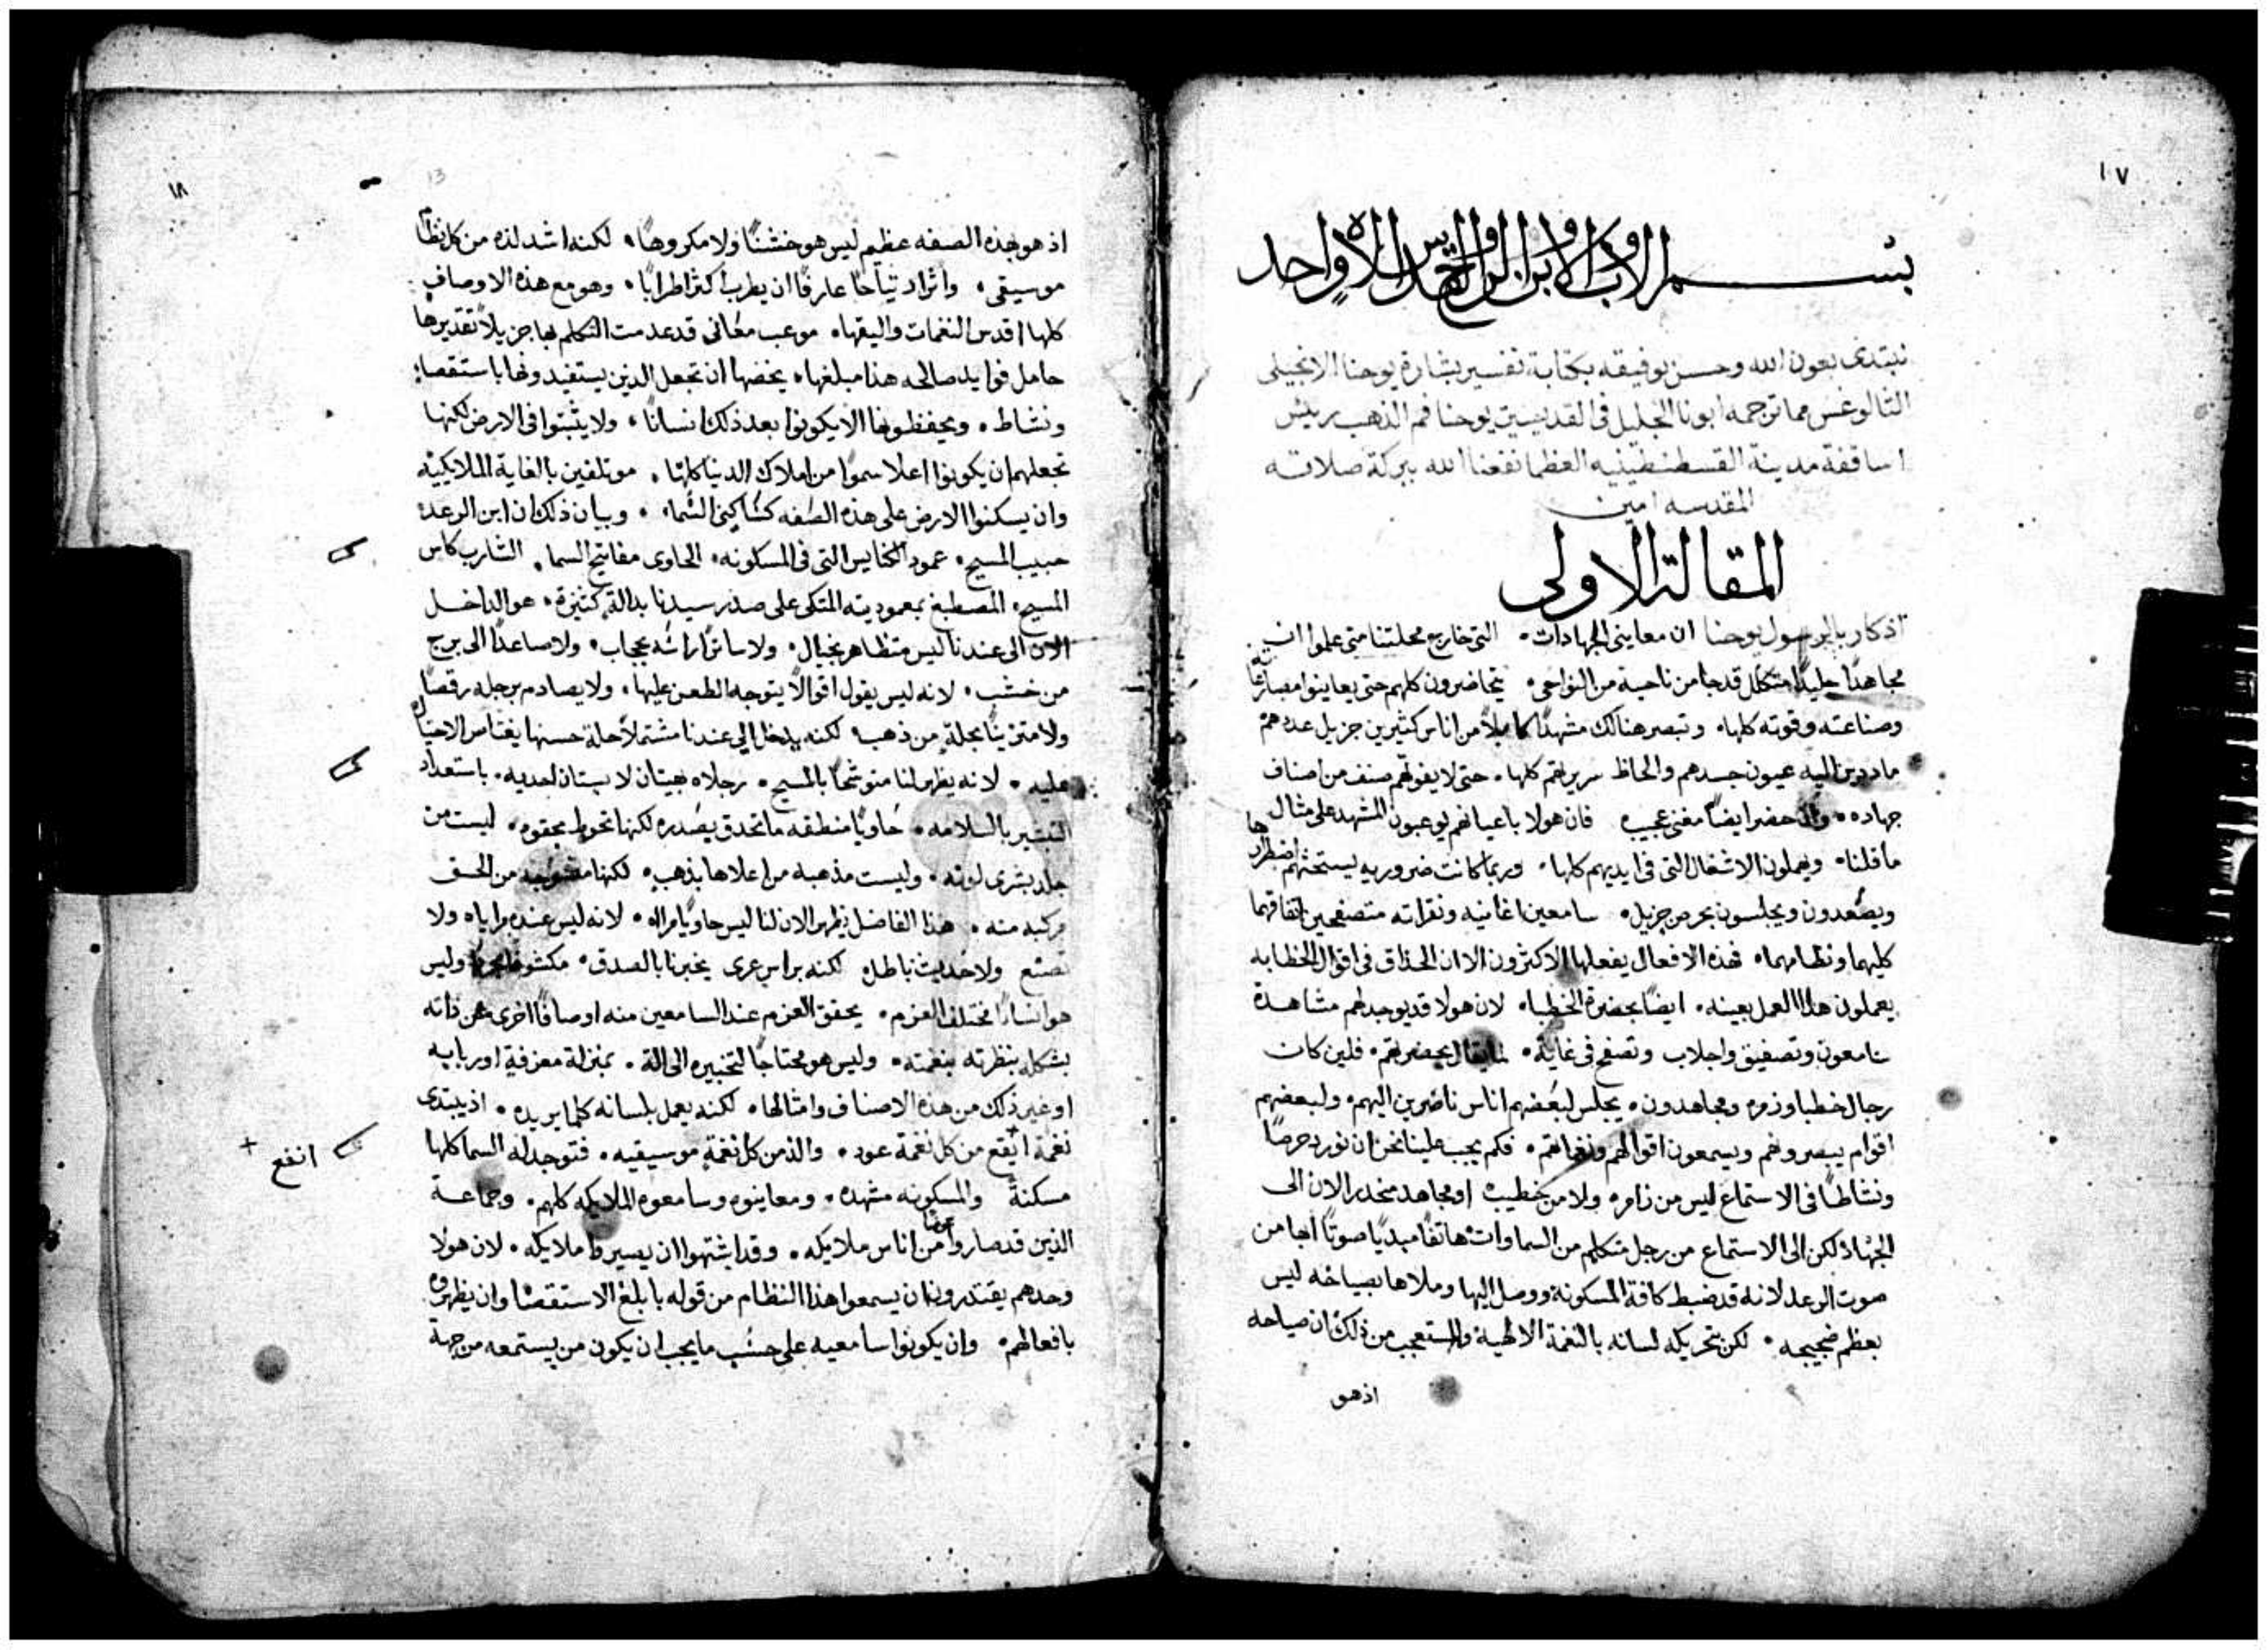 ١٧
بسم الاب والابن والروح القدس الاه واحد
نبتدى بعون الله وحسن توفيقه بكتابة تفسير بشارة يوحنا الانجيلى
الثالوغس مما ترجمه ابونا الجليل فى القديسين يوحنا فم الذهب ريئس
اساقفة مدينة القسطنطينيه العظما نفعنا الله ببركة صلاته
المقدسه امين
المقالة الاولى
اذكار بالرسول يوحنا ان معاينى الجهادات. التى خارج محلتنا متى علموا ان
مجاهدًا جليدًا متكلل قد جا من ناحية من النواحى. يتحاضرون كلهم حتى يعاينوا مصارعًا
وصناعته وقوته كلها. وتبصر هنالك مشهدًا كاملاً من اناس كثيرين جزيل عددهم
مادين اليه عيون جسدهم والحاظ سريرتهم كلها. حتى لا يفوتهم صنف من اصناف
جهاده. وان حضر ايضًا مغنى عجيب فان هولا باعيانهم يوعبون المشهد على مثال
ما قلنا. ويهملون الاشغال التى فى ايديهم كلها. وربما كانت ضروريه ليستحثهم اضطرارها
ويصعدون ويجلسون بحرص جزيل. سامعين اغانيه ونقراته متصفحين اتفاقهما
كليهما ونظامهما. فهذه الافعال يفعلها الاكثرون الا ان الحذاق فى اقوال الخطابه
يعملون هذا العمل بعينه. ايضًا بحضرة الخطبا. لان هولا قد يوجد لهم مشاهدة
سامعون وتصفيق واجلاب وتصفح فى غاية. لما يقال بحضرتهم. فلين كان
رجال خطبا وزمره ومجاهدون. يجلس لبعضهم اناس ناضرين اليهم. ولبعضهم
اقوام يبصروهم ويسمعون اقوالهم ونغماتهم. فكم يجب علينا نحن ان نورد حرصًا
ونشاطًا فى الاستماع ليس من زامر. ولا من خطيب او مجاهد منحدر الان الى
الجهاد لكن الى الاستماع من رجل متكلم من السماوات هاتفًا مبديًا صوتًا ابها من
صوت الرعد لانه قد ضبط كافة المسكونة ووصل اليها وملاها بصياحه ليس
بعظم ضجيجه. لكن بتحريكه لسانه بالنغمة الالهية والمستعجب من ذلك ان صياحه
اذ هو
١٨
13
اذ هو بهذه الصفه عظيم ليس هو خشنًا ولا مكروهًا. لكنه اشد لذه من كل نظام
موسيقى. واثراد تياحًا عارفًا ان يطرب اكثر اطرابًا. وهو مع هذه الاوصاف
كلها اقدس النغمات واليقها. موعب معانى قد عدمت التكلم بها جزيلاً تقديرها
حامل فوايد صالحه هذا مبلغها. يخصها ان تجعل الذين يستفيدونها باستقصا
ونشاط. ويحفظونها الا يكونوا بعد ذلك انسانًا. ولا يثبتوا فى الارض لكنها
تجعلهم ان يكونوا اعلا سموًا من املاك الدنيا كلها. موتلفين بالغاية الملايكيه
وان يسكنوا الارض على هذه الصفه كساكنى السما. وبيان ذلك ان ابن الرعد
حبيب المسيح. عمود الكنايس التى فى المسكونه. الحاوى مفاتيح السما. الشارب كاس
المسيح. المصطبغ بمعموديته المتكى على صدر سيدنا بدالة كثيرة. هو الداخل
الان الى عندنا ليس متظاهر بخيال. ولا ساترًا راسه بحجاب. ولا صاعدًا الى برج
من خشب. لانه ليس يقول اقوالاً يتوجه الطعن عليها. ولا يصادم برجله رقصًا
ولا متزينًا بحلة من ذهب. لكنه يدخل الى عندنا مشتملاً حلة حسنها يغتاص الاحتيال
عليه. لانه يظهر لنا متوشحًا بالمسيح. رجلاه بهيتان لابستان لحذيه. باستعداد
التبشير بالسلامه. حاويًا منطقه ما تحدق بصدره لكنها تحوط بحقويه. ليست من
جلد بشرى لونه. وليست مذهبه من اعلاها بذهب. لكنها من الحق
مركبه منه. هذا الفاضل يظهر الان لنا ليس حاويًا مراه. لانه ليس عنده مراياه ولا
تصنع ولا حديث باطل لكنه براس عرى يخبرنا بالصدق. وليس
هو انسانًا مختلف العزم. يحقق العزم عند السامعين منه اوصافًا اخرى عن ذاته
بشكله بنظرته بنغمته. وليس هو محتاجًا لتخبيره الى الة. بمنزلة معزفة او ربابه
او غير ذلك من هذه الاصناف وامثالها. لكنه يعمل بلسانه كلما يريده. اذ يبتدى
نغمة انفع من كل نغمة عود. والذ من كل نغمة موسيقيه. فتوجد له السما كلها
انفع
مسكنة والمسكونه مشهده. ومعاينوه وسامعوه الملايكه كلهم. وجماعة
الذين قد صاروا من اناس ملايكه. وقد اشتهوا ان يصيروا ملايكه. لان هولا
وحدهم يقتدرون ان يسمعوا هذا النظام من قوله بابلغ الاستقصا وان يظهروه
بافعالهم. وان يكونوا سامعيه على حسب ما يجب ان يكون من يستمعه من جهة